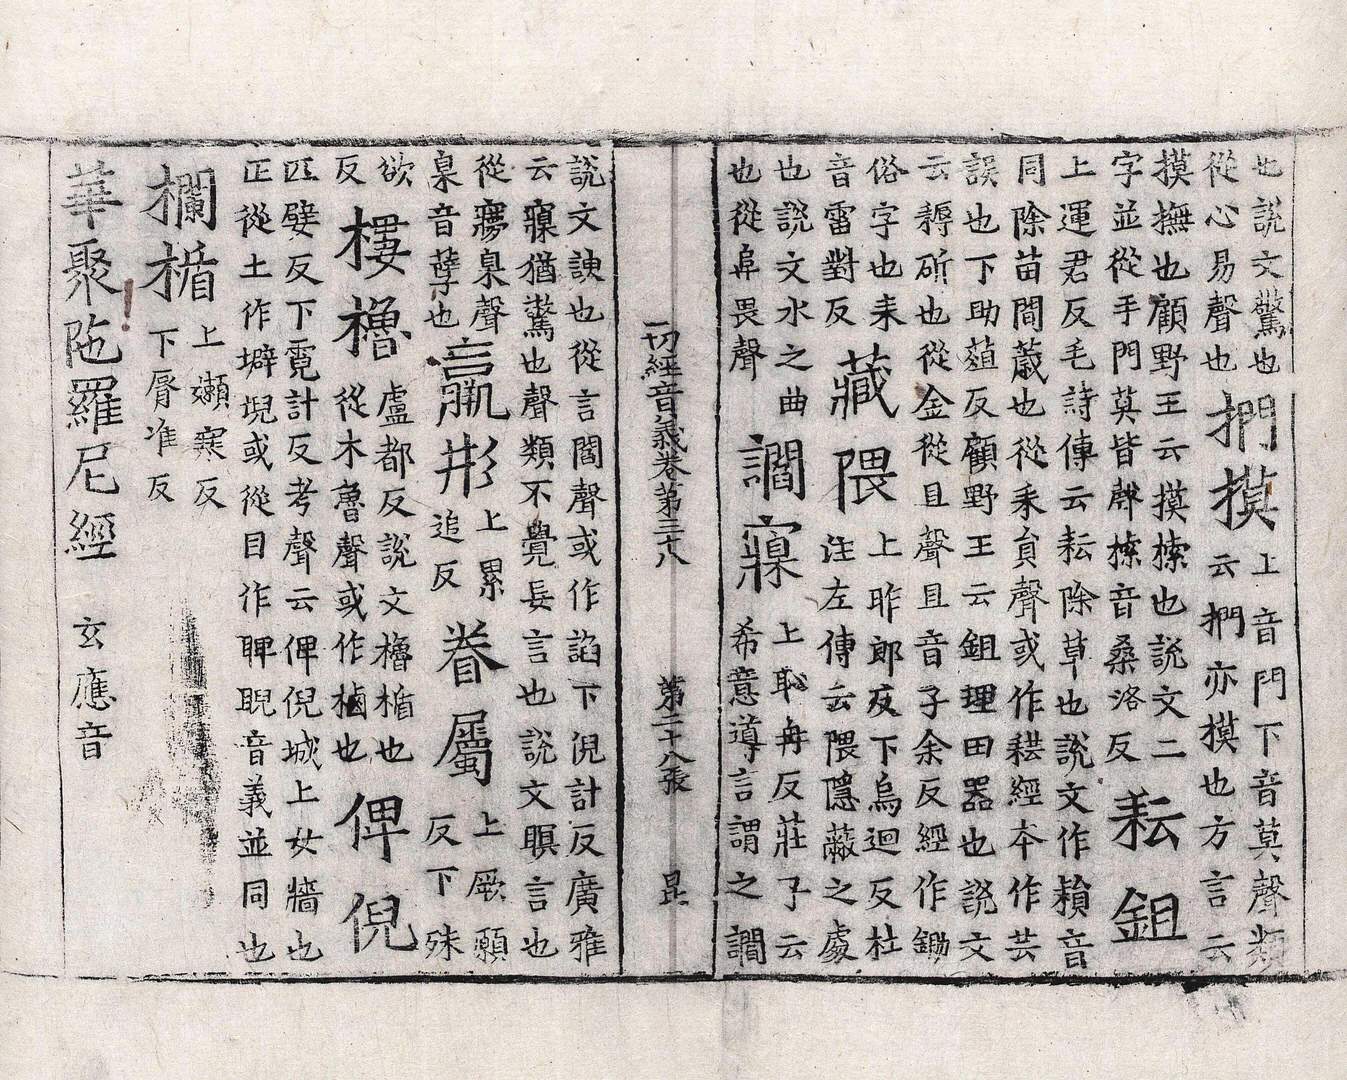 也說文驚也
從心易聲也
捫摸
上音門下音莫聲類
云捫亦摸也方言云
摸撫也顧野王云摸㨞也說文二
字並從手門莫皆聲㨞音桑洛反
耘鉏
上運君反毛詩傳云耘除草也說文作䅵音
同除苗間薉也從耒員聲或作耕經本作芸
誤也下助葅反顧野王云鉏理田器也說文
云耨斫也從金從且聲且音子余反經作鋤
俗字也耒
音雷對反
藏隈
上昨郎反下烏迴反杜
注左傳云隈隱蔽之處
也說文水之曲
也從阜畏聲
讇寱
上恥冉反莊子云
希意導言謂之讇
一切經音義卷第三十八 第二十八張 昆
說文諛也從言閻聲或作諂下倪計反廣雅
云寱猶驚也聲類不覺長言也說文瞑言也
從㝱臬聲
臬音孽也
羸形
上累
追反
眷屬
上厥願
反下殊
欲
反
樓櫓
盧都反說文櫓楯也
從木魯聲或作樐也
俾倪
匹嬖反下霓計反考聲云俾倪城上女牆也
正從土作壀堄或從目作睥睨音義並同也
欄楯
上嬾寒反
下脣准反
華聚陁羅尼經 玄應音